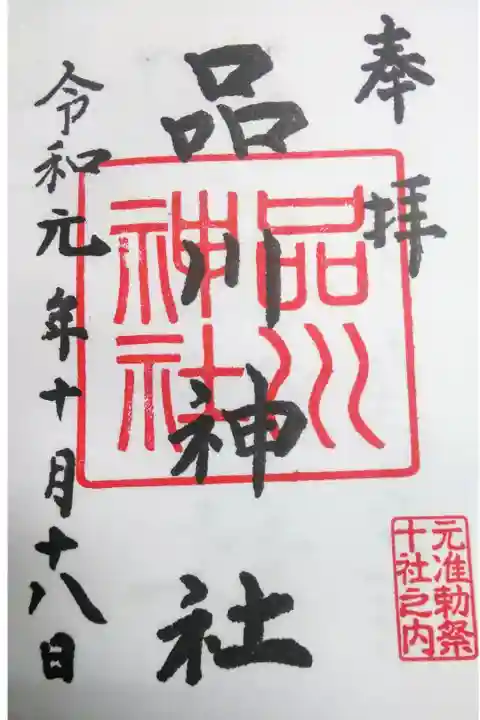 奉拝
品川神社
品川神社
元准勅祭
十社之内
令和元年十月十八日